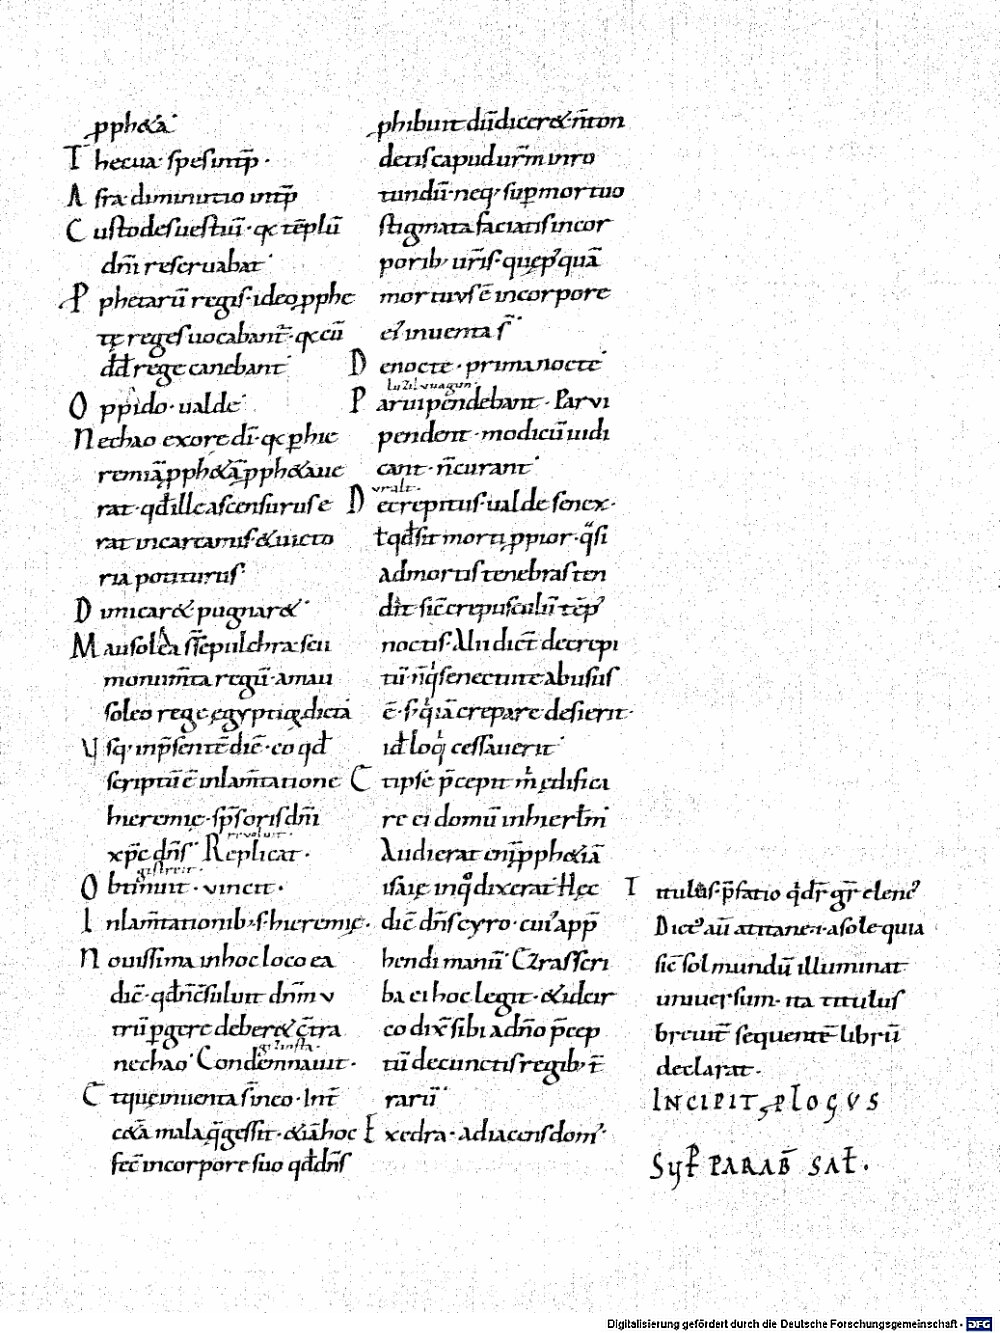 ꝓph&ā·
Thecua· spes int̄p·
Asra· diminutio int̄p
Custodes uestiū· q̨ tēplū
dn̄i reseruabat·
Pphetarū regis· ideo ꝓphe
tę reges uocabant̄· q̨ cū
dd̄ rege canebant·
Oppido· ualde·
Nechao ex ore dī· q̨ ꝑ hie
remiā ꝓph&ā ꝓph&aue
rat· qđ ille ascensurus e
rat in carcamis· & uicto
ria potiturus·
Dimicar& pugnar&·
Mausolea s̄ sepulchra seu
monum̄ta regū· a mau
soleo rege ęgyptiq̨ dicta
Vsq· in p̄sentē diē· eo qđ
scriptū ē in lam̄tatione
hieremię· sp̄s oris dn̄i
xp̄c dn̄s· Replicat·
reuoluit·
Obtinuit· uincit·
gistreit·
In lam̄tationib· s· hieremię·
Nouissima in hoc loco ea
dic̄· qđ n̄ c̄suluit dn̄m v
trū ꝑgere deber& c̄tra
nechao· Condemnauit·
gizinsta·
Ctique inuenta s̄ in eo· Int̄
c&ā mala q̄ gessit· & iā hoc
fec̄ in corpore suo qđ dn̄s
phibuit dū dicer& n̄ ton
detis capud ur̄m in ro
tundū· neq· suꝑ mortuo
stigmata faciatis in cor
porib· ur̄is· quęp̄ quā
mortuus ē in corpore
ei inuenta s̄·
De nocte· prima nocte·
luziluuagun·
Parui pendebant· Parui
pendent· modicū iudi
cant· n̄ curant·
vralt·
Decrepitus· ualde senex·
ł qđ sit morti ꝓpior· q̄si
ad mortis tenebras ten
dit· sic̄ crepusculū tēp
noctis· Alii dict̄ decrepi
tū· n̄ q̄ senectute abusus
ē· s· q̄ iā crepare desierit·
id loqi cessauerit·
Ctipse p̄cepit m̄ ędifica
re ei domū in hierłm·
Audierat eni ꝓph&iā
isaię in q̊ dixerat· Hęc
dic̄ dn̄s cyro· cui app̄
hendi manū· Ezras scri
ba ei hoc legit· & ideir
co dix̄ sibi a dn̄o p̄cep
tū de cunctis regib· t̄
rarū·
Exedra· adiacens dom·
Titulus· p̄fatio q̊ dr̄ gr̄ elenc
Dict aū a titane· i· a sole quia
sic̄ sol mundū illuminat
uniuersum· ita titulus
breuit̄ sequentē librū
declarat·
INCIPIT ꝓLOGVS
SYP̄ PARAB̄ SAŁ·